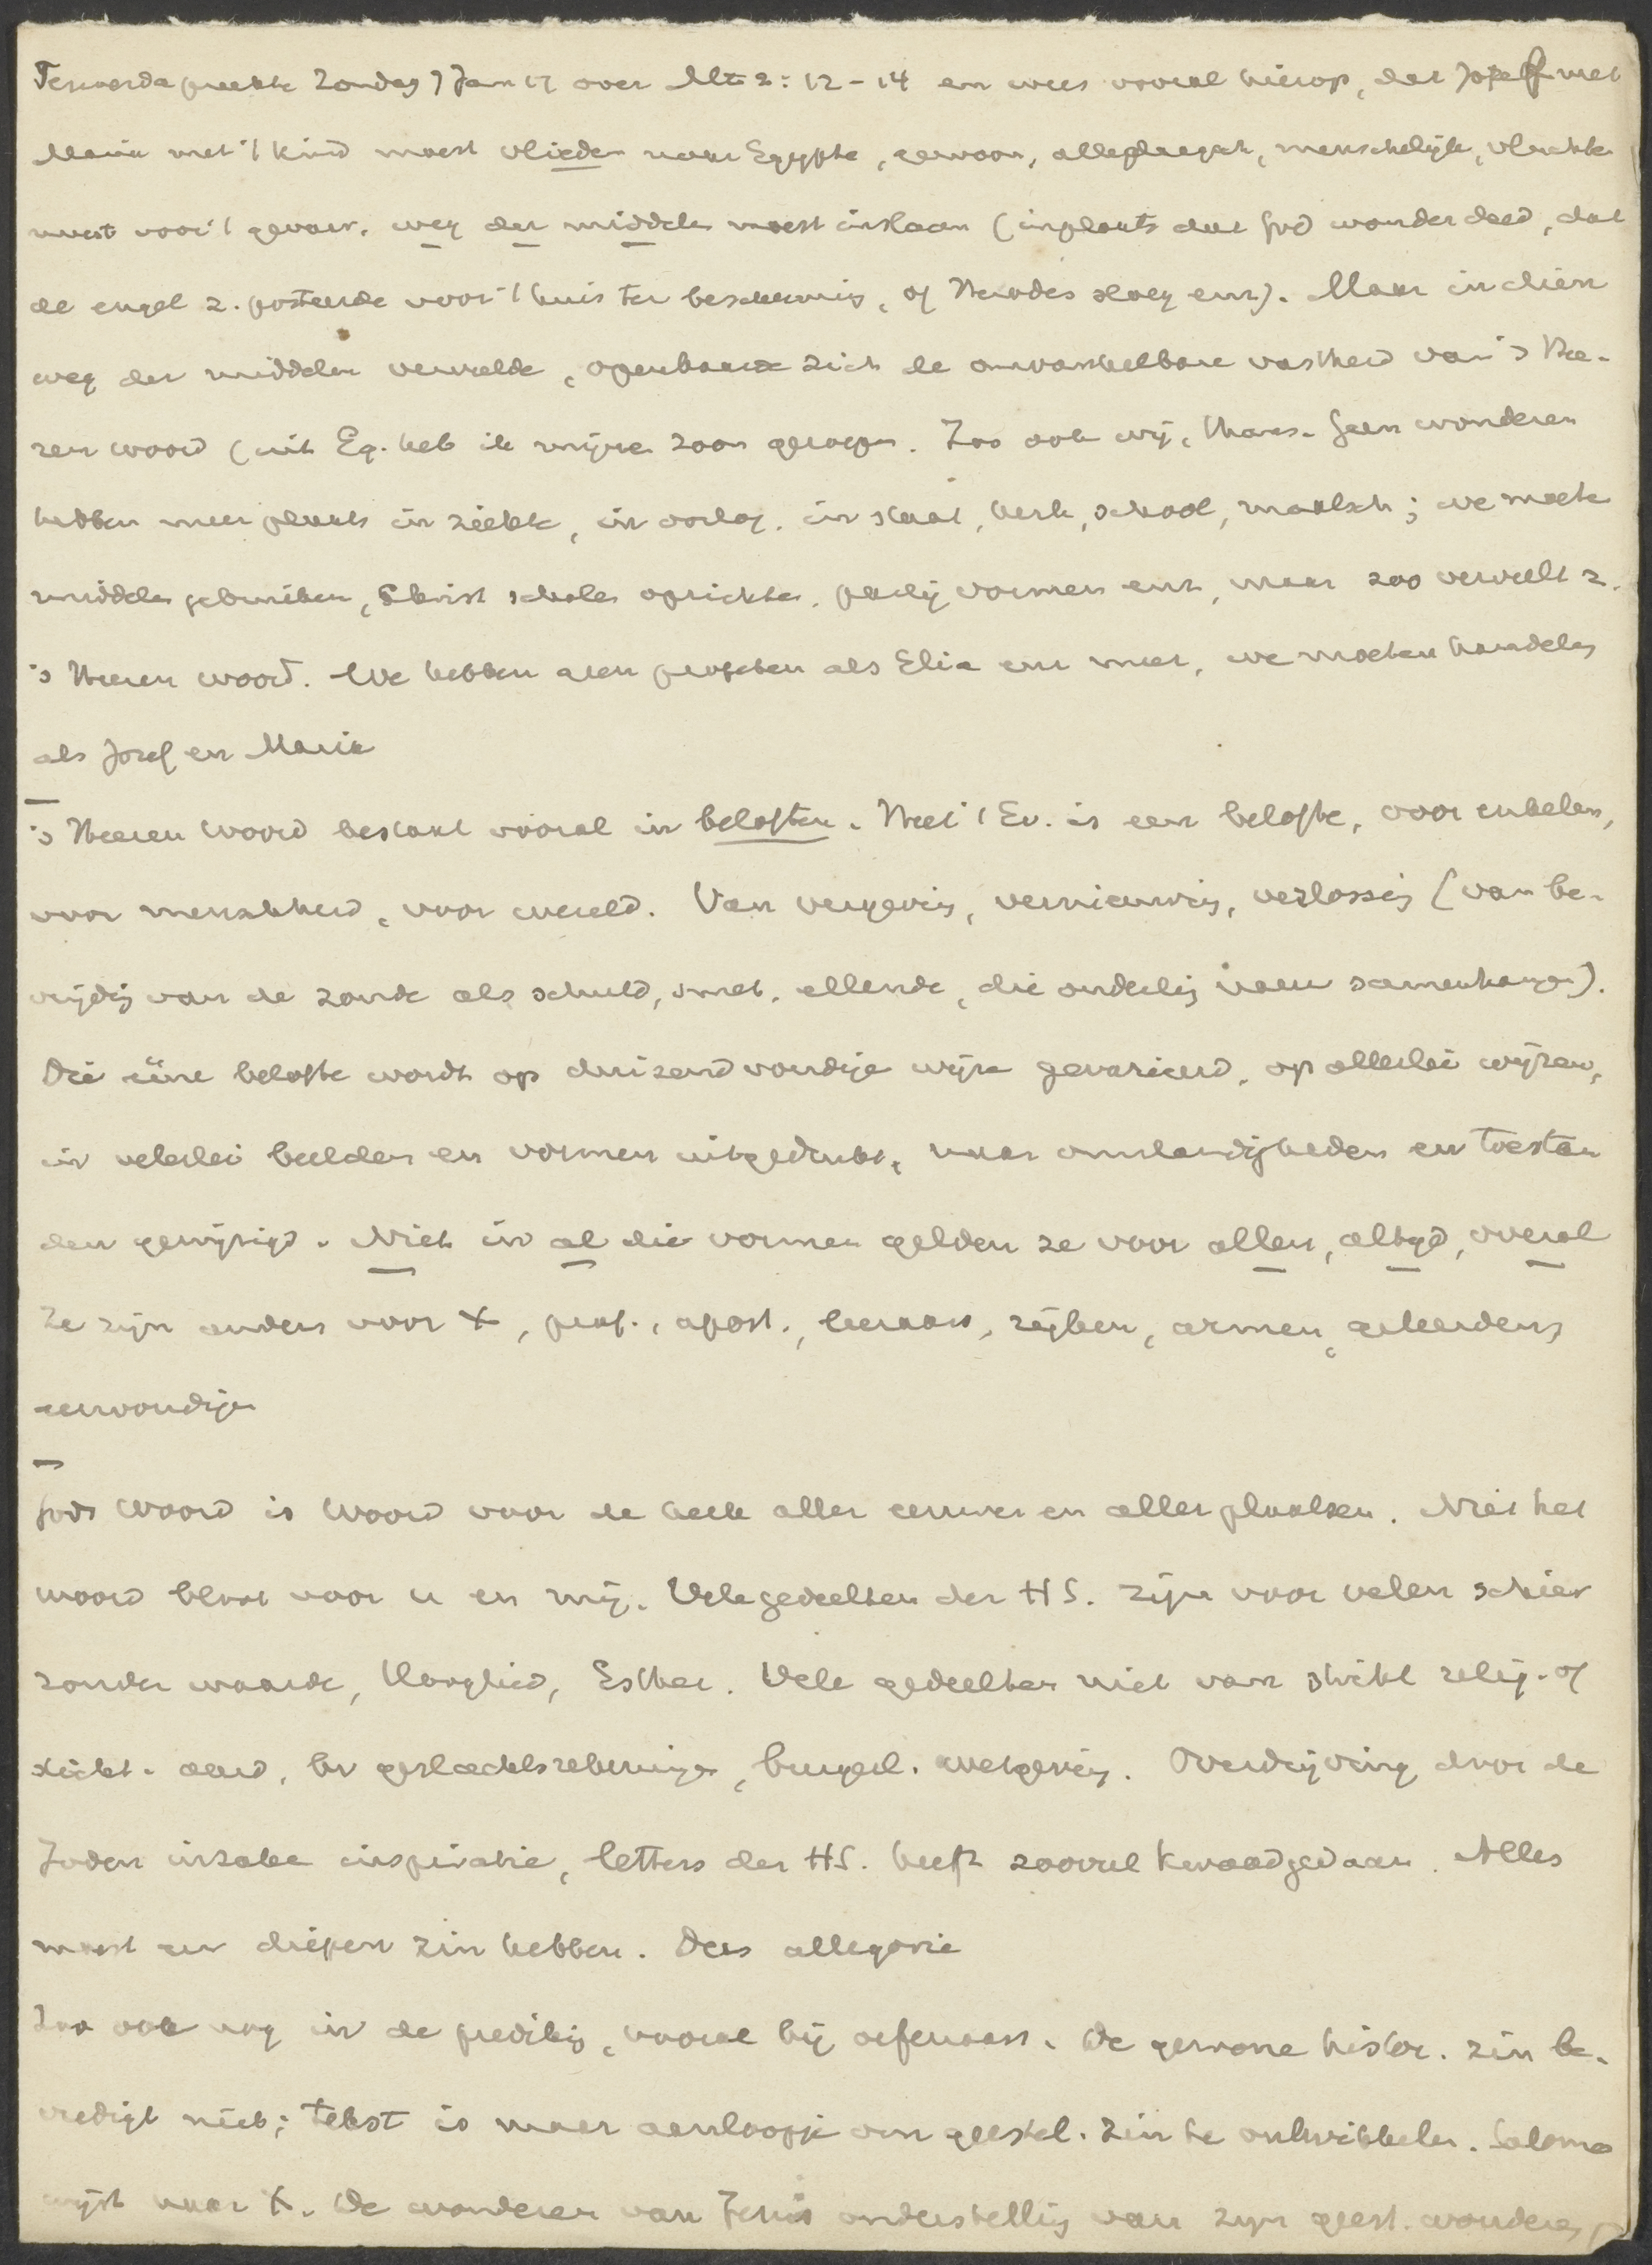 preekte Zondag 7 Jan 17 over Mt 2: 12-14 en wees vooral hierop, dat Jozef met
Maria met 't kind moest vlieden naar Egypte, gewoon, alledaagsch, menschelijk, vluchten
moest voor 't gevaar. weg der middelen moest inslaan (inplaats dat God wonder deed, dat
de engel z. posteerde voor 't huis ter bescherming, of Herodes sloeg enz). Maar in dien
weg der middelen vervulde, openbaarde zich de onwankelbare vastheid van 's Hee-
ren woord (uit Eg. heb ik mijnen zoon geroepen. Zoo ook wij, thans. Geen wonderen
hebben meer plaats in ziekte, in oorlog. in staat, kerk, school, maatsch; we moeten
middelen gebruiken, Christ scholen oprichten. partij vormen enz, maar zoo vervult z.
's Heeren woord. We hebben geen profeten als Elia enz meer, we moeten handelen
als Jozef en Maria
's Heeren Woord bestaat vooral in beloften. Heel 't Ev. is een belofte, voor enkelen,
voor menschheid, voor wereld. Van vergeving, vernieuwing, verlossing (van be-
vrijding van de zonde als schuld, smet, ellende, die onderling nauw samenhangen).
Die ééne belofte wordt op duizendvoudige wijze gevarieerd, op allerlei wijzen,
in velerlei beelden en vormen uitgedrukt, naar omstandigheden en toestan
den gewijzigd. Niet in al die vormen gelden ze voor allen, altijd, overal
Ze zijn anders voor X, prof., apost., leeraars, rijken, armen, geleerden,
eenvoudigen
Gods Woord is Woord voor de kerk aller eeuwen en aller plaatsen. Niet het
woord bloot voor u en mij. Vele gedeelten der HS. zijn voor velen schier
zonder waarde, Hooglied, Esther. Vele gedeelten niet van strikt relig. of
sticht. aard, bv geslachtsrekeningen, burgerl. wetgeving. Overdrijving door de
Joden inzake inspiratie, letters der HS. heeft zooveel kwaad gedaan. Alles
moest een diepen zin hebben. Dus allegorie
Zoo ook nog in de prediking, vooral bij oefenaars. De gewone histor. zin be-
vredigt niet; tekst is maar aanloopje om geestel. zin te ontwikkelen. Salomo
wijst naar X. De wonderen van Jezus onderstelling van zijn geest. wonderen,